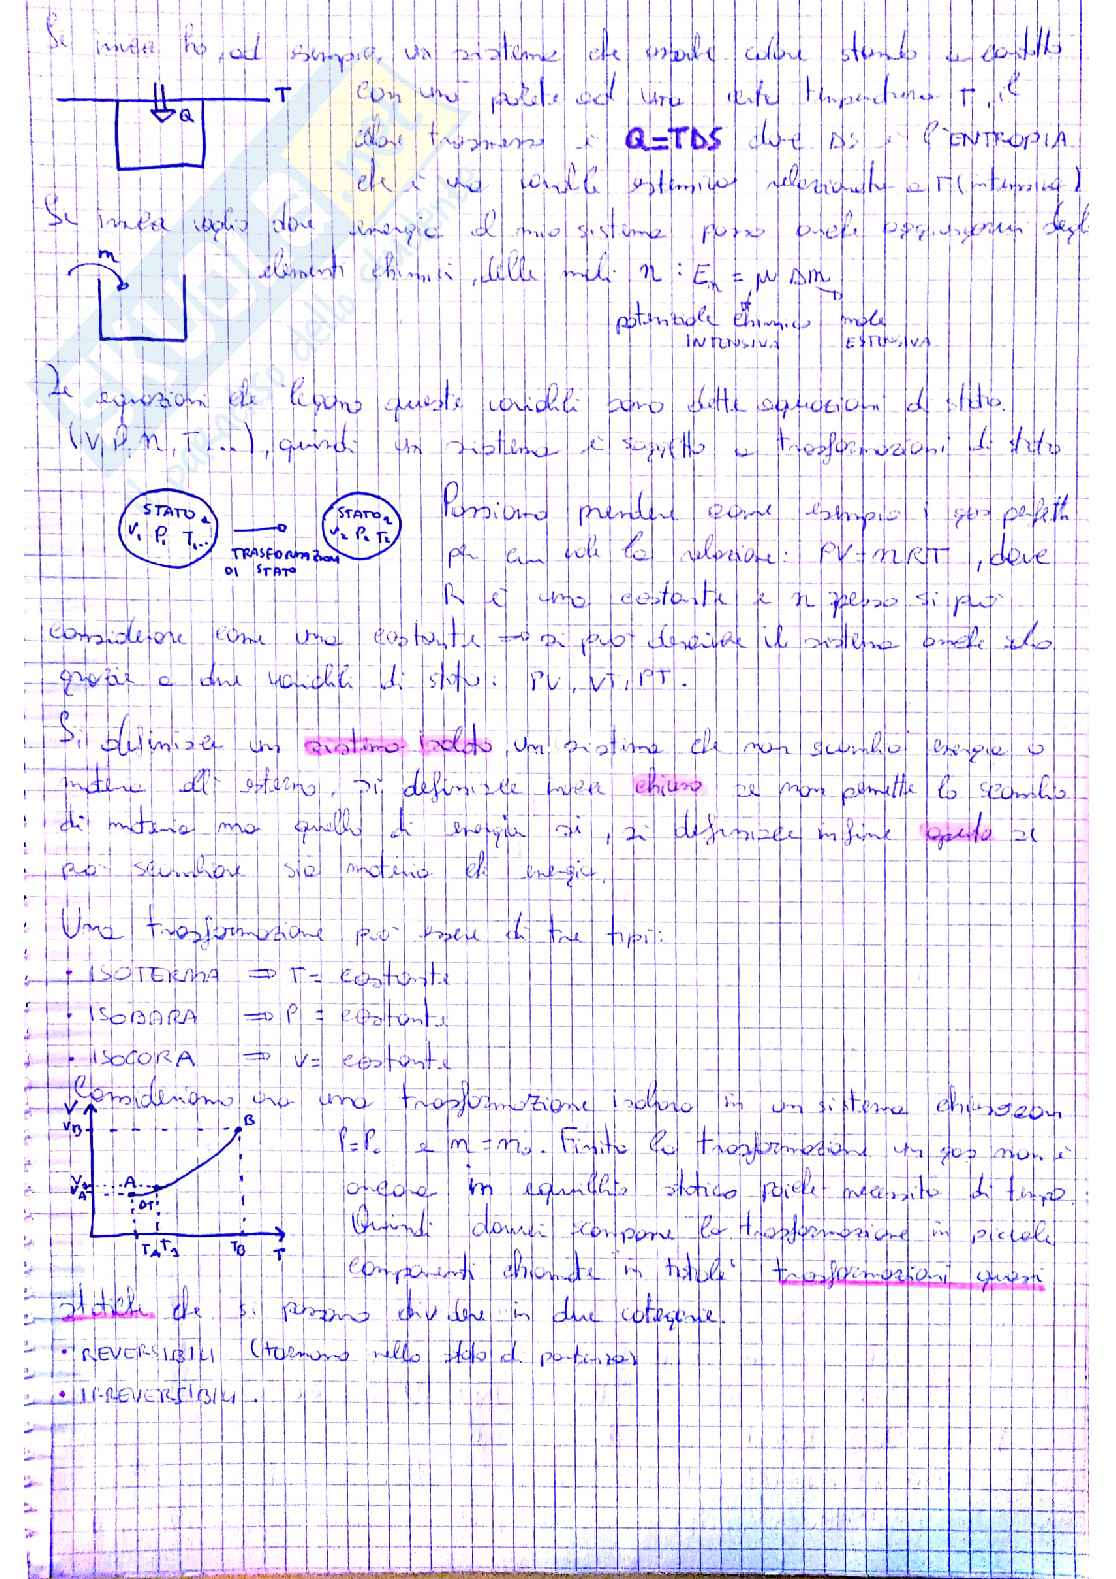 Se invece ho, ad esempio, un sistema che assorbe calore stando a contatto
con una parete ad una certa temperatura T, il
calore trasmesso è Q=TΔS dove ΔS è l'ENTROPIA
che è una variabile estensiva relazionata a T (intensiva)
T
Q
Se invece voglio dare energia al mio sistema posso anche aggiungerci degli
elementi chimici, delle moli n : En = μ Δm
m
potenziale chimico mole
INTENSIVA ESTENSIVA
Le equazioni che legano queste variabili sono dette equazioni di stato.
(V, P, n, T...), quindi un sistema è soggetto a trasformazioni di stato
STATO 1
V1 P1 T1...
TRASFORMAZIONI
DI STATO
STATO 2
V2 P2 T2
Possiamo prendere come esempio i gas perfetti
per cui vale la relazione: PV=nRT, dove
R è una costante e n spesso si può
considerare come una costante ⇒ si può descrivere il sistema anche solo
grazie a due variabili di stato: PV, VT, PT.
Si definisce un sistema isolato un sistema che non scambia energia o
materia all'esterno, si definisce invece chiuso se non permette lo scambio
di materia ma quello di energia si, si definisce infine aperto se
può scambiare sia materia che energia.
Una trasformazione può essere di tre tipi:
• ISOTERMA ⇒ T= costante
• ISOBARA ⇒ P = costante
• ISOCORA ⇒ V= costante
Consideriamo ora una trasformazione isobara in un sistema chiuso con
P=P0 e n=n0. Finita la trasformazione un gas non è
ancora in equilibrio statico poiché necessita di tempo.
Quindi dovrei comporre la trasformazione in piccole
componenti chiamate in totale trasformazioni quasi
V
VB
VA
A
B
DT
TA T1 TB T
statiche che si possono dividere in due categorie.
• REVERSIBILI (tornano nello stato di partenza)
• IRREVERSIBILI.